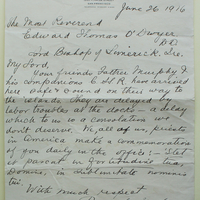 June 26, 1916
The Most Reverend
Edward Thomas O'Dwyer
D.D.
Lord Bishop of Limerick, Ire.
My Lord,
Your friends Father Murphy &
his companions C.SS.R. have arrived
here safe & sound on their way to
the islands. They are delayed by
labor troubles at the docks – a delay
which to us is a consolation we
don't deserve. We, all of us, priests
in America make a commemoration
of you daily in the office:
et
parent in fortitudine tua
Domine, in sublimitate nominis
tui.
With much respect